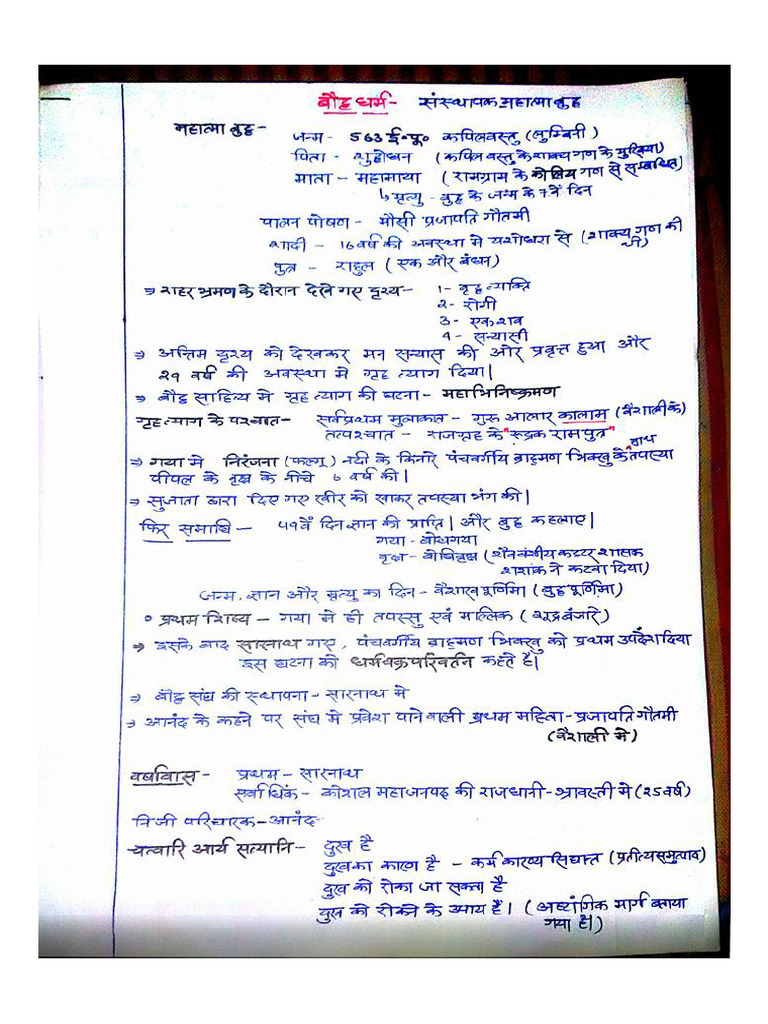 बौद्ध धर्म - संस्थापक महात्मा बुद्ध
महात्मा बुद्ध - जन्म - 563 ई॰पू॰ कपिलवस्तु (लुम्बिनी)
पिता - शुद्धोधन (कपिलवस्तु के शाक्य गण के मुखिया)
माता - महामाया (रामग्राम के कोलिय गण से सम्बंधित)
↳ मृत्यु - बुद्ध के जन्म के 7वें दिन
पालन पोषण - मौसी प्रजापति गौतमी
शादी - 16 वर्ष की अवस्था मे यशोधरा से (शाक्य गण की थी)
पुत्र - राहुल (एक और बंधन)
⇒ शहर भ्रमण के दौरान देखे गए दृश्य - 1- वृद्ध व्यक्ति
2- रोगी
3- एक शव
4- सन्यासी
⇒ अन्तिम दृश्य को देखकर मन सन्यास की ओर प्रवृत्त हुआ और
29 वर्ष की अवस्था मे गृह त्याग दिया|
⇒ बौद्ध साहित्य मे गृह त्याग की घटना - महाभिनिष्क्रमण
गृहत्याग के पश्चात - सर्वप्रथम मुलाकात - गुरु आलार कालाम (वैशाली के)
तत्पश्चात - राजगृह के "रुद्रक रामपुत्र"
⇒ गया मे निरंजना (फल्गु) नदी के किनारे पंचवर्गीय ब्राह्मण भिक्खु के साथ तपस्या
पीपल के वृक्ष के नीचे 6 वर्ष की|
⇒ सुजाता द्वारा दिए गए खीर को खाकर तपस्या भंग की|
फिर समाधि - 49वें दिन ज्ञान की प्राप्ति| और बुद्ध कहलाए|
गया - बोधगया
वृक्ष - बोधिवृक्ष (शैव वंशीय कट्टर शासक
शशांक ने कटवा दिया)
जन्म, ज्ञान और मृत्यु का दिन - वैशाख पूर्णिमा (बुद्ध पूर्णिमा)
० प्रथम शिष्य - गया मे ही तपस्सु एवं मल्लिक (शूद्र बंजारे)
⇒ इसके बाद सारनाथ गए, पंचवर्गीय ब्राह्मण भिक्खु को प्रथम उपदेश दिया
इस घटना को धर्मचक्रपरिवर्तन कहते है|
⇒ बौद्ध संघ की स्थापना - सारनाथ मे
⇒ आनंद के कहने पर संघ मे प्रवेश पाने वाली प्रथम महिला - प्रजापति गौतमी
(वैशाली मे)
वर्षावास - प्रथम - सारनाथ
सर्वाधिक - कोशल महाजनपद की राजधानी - श्रावस्ती मे (25 वर्ष)
निजी परिचारक - आनंद
चत्वारि आर्य सत्यानि - दुख है
दुख का कारण है - कर्म कारण सिद्धान्त (प्रतीत्यसमुत्पाद)
दुख को रोका जा सकता है
दुख को रोकने के उपाय हैं| (अष्टांगिक मार्ग बताया
गया है|)